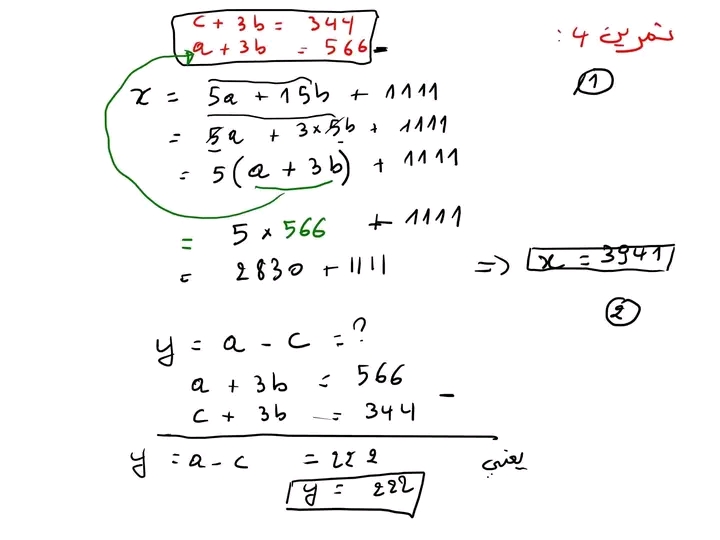 c + 3b = 344
a + 3b = 566
تمرين 4 :
1
x = 5a + 15b + 1111
= 5a + 3×5b + 1111
= 5(a + 3b) + 1111
= 5 × 566 + 1111
= 2830 + 1111 => x = 3941
2
y = a - c = ?
a + 3b = 566
c + 3b = 344
-
y = a - c = 222 يعني
y = 222